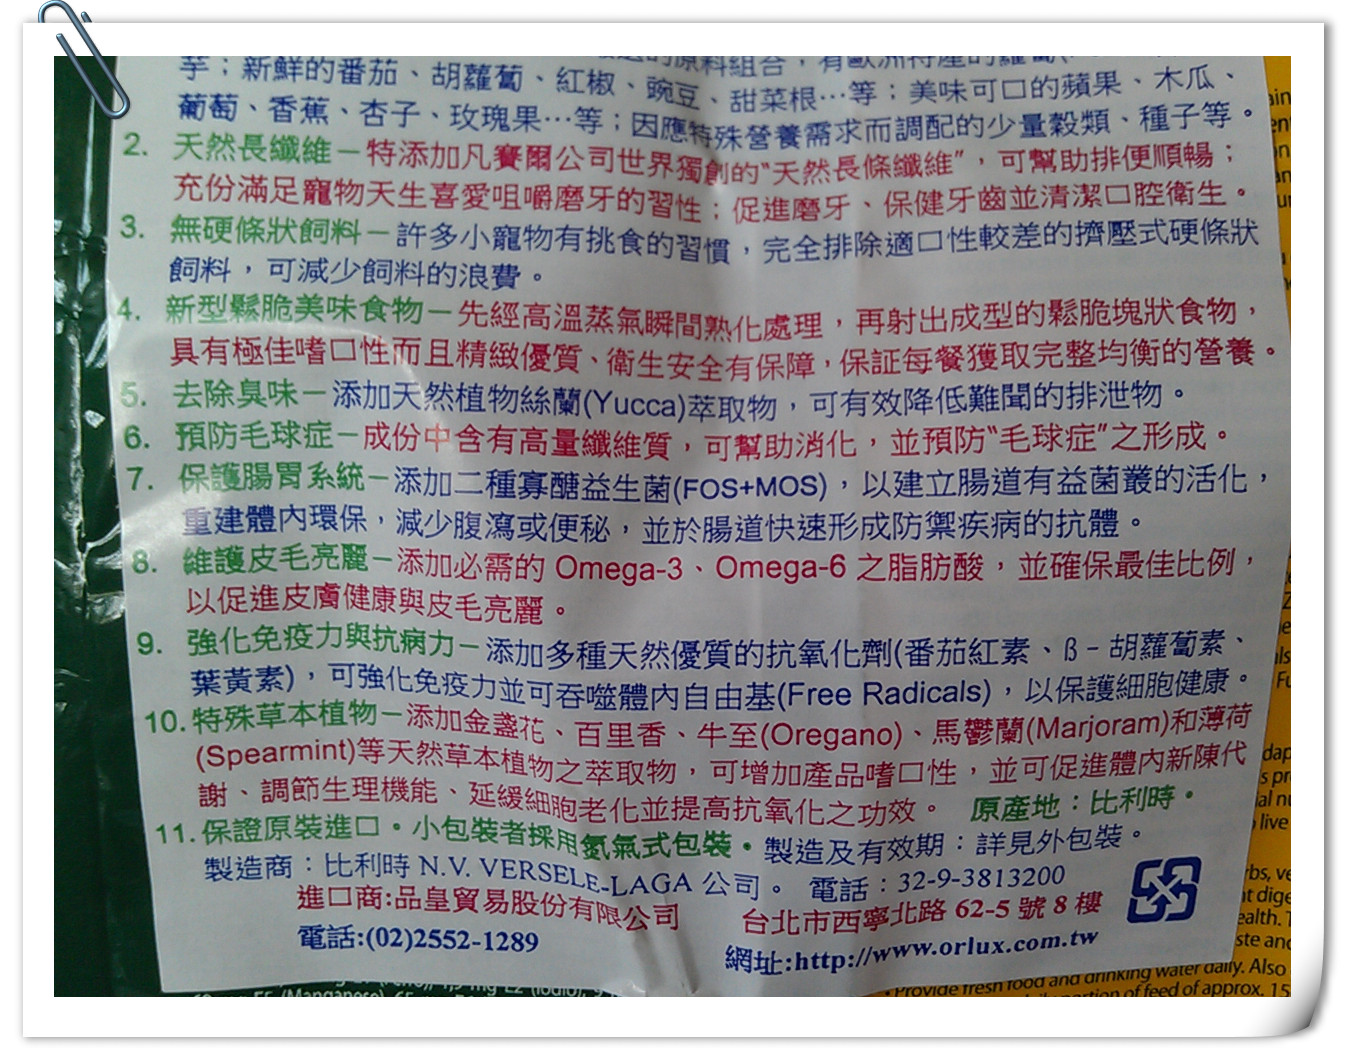 的原料組合，有歐洲特產的蘿蔔
芋；新鮮的番茄、胡蘿蔔、紅椒、豌豆、甜菜根…等；美味可口的蘋果、木瓜、
葡萄、香蕉、杏子、玫瑰果…等；因應特殊營養需求而調配的少量穀類、種子等。
2. 天然長纖維－特添加凡賽爾公司世界獨創的“天然長條纖維”，可幫助排便順暢；
充份滿足寵物天生喜愛咀嚼磨牙的習性；促進磨牙、保健牙齒並清潔口腔衛生。
3. 無硬條狀飼料－許多小寵物有挑食的習慣，完全排除適口性較差的擠壓式硬條狀
飼料，可減少飼料的浪費。
4. 新型鬆脆美味食物－先經高溫蒸氣瞬間熟化處理，再射出成型的鬆脆塊狀食物，
具有極佳嗜口性而且精緻優質、衛生安全有保障，保証每餐獲取完整均衡的營養。
5. 去除臭味－添加天然植物絲蘭(Yucca)萃取物，可有效降低難聞的排泄物。
6. 預防毛球症－成份中含有高量纖維質，可幫助消化，並預防“毛球症”之形成。
7. 保護腸胃系統－添加二種寡醣益生菌(FOS+MOS)，以建立腸道有益菌叢的活化，
重建體內環保，減少腹瀉或便秘，並於腸道快速形成防禦疾病的抗體。
8. 維護皮毛亮麗－添加必需的 Omega-3、Omega-6 之脂肪酸，並確保最佳比例，
以促進皮膚健康與皮毛亮麗。
9. 強化免疫力與抗病力－添加多種天然優質的抗氧化劑(番茄紅素、ß－胡蘿蔔素、
葉黃素)，可強化免疫力並可吞噬體內自由基(Free Radicals)，以保護細胞健康。
10. 特殊草本植物－添加金盞花、百里香、牛至(Oregano)、馬鬱蘭(Marjoram)和薄荷
(Spearmint)等天然草本植物之萃取物，可增加產品嗜口性，並可促進體內新陳代
謝、調節生理機能、延緩細胞老化並提高抗氧化之功效。 原產地：比利時。
11. 保證原裝進口。小包裝者採用氮氣式包裝。製造及有效期：詳見外包裝。
製造商：比利時 N.V. VERSELE-LAGA 公司。 電話：32-9-3813200
進口商:品皇貿易股份有限公司 台北市西寧北路 62-5 號 8 樓
電話:(02)2552-1289 網址:http://www.orlux.com.tw
Provide fresh food and drinking water daily. Also
portion of feed of approx. 15